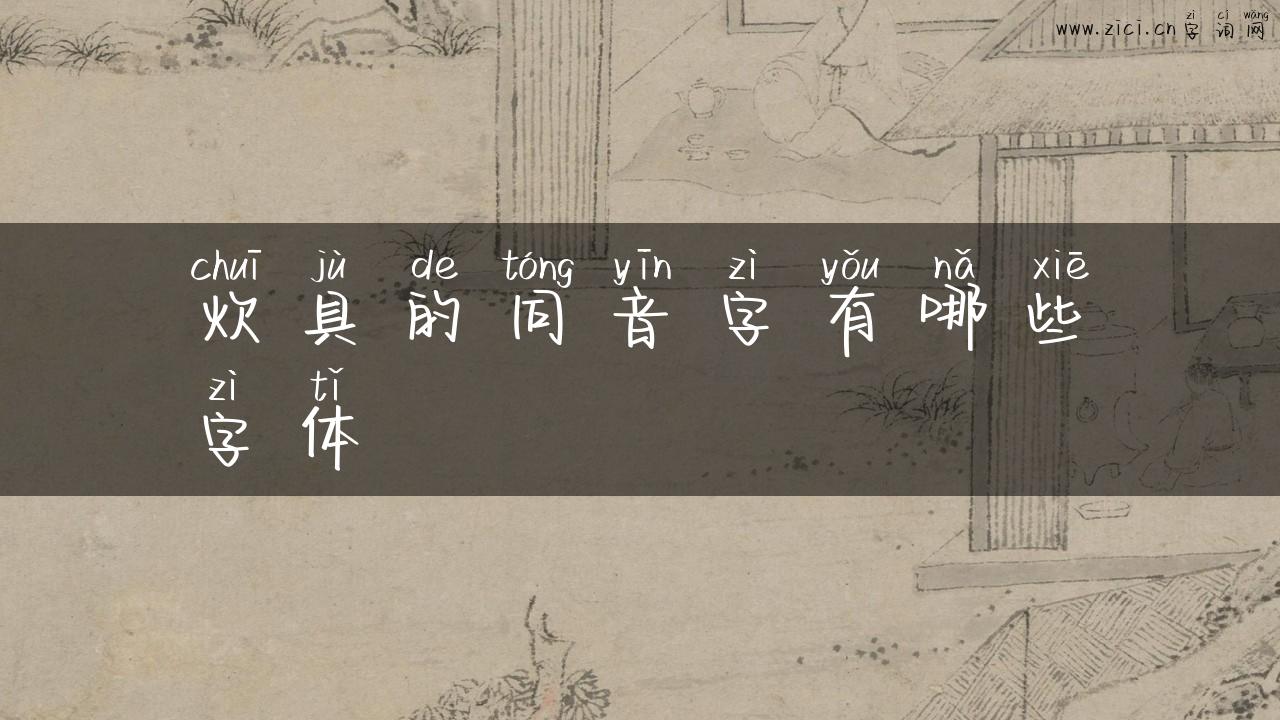 zì cí wǎng
www.zici.cn 字词网
chuī jù de tóng yīn zì yǒu nǎ xiē
炊具的同音字有哪些
zì tǐ
字体